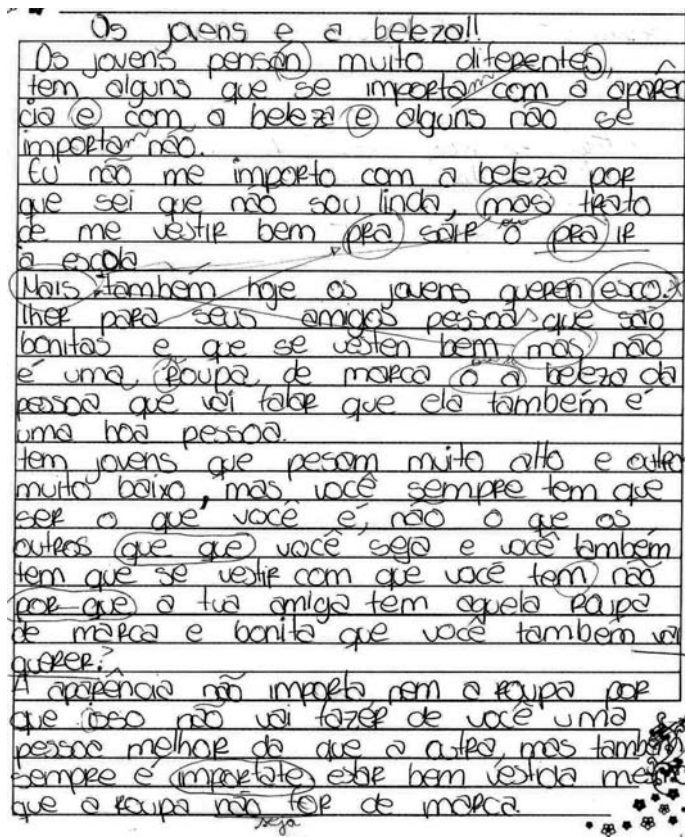 Os jovens e a beleza!!
Os jovens pensan muito diferentes,
tem alguns que se importam com a aparên
cia e com a beleza e alguns não se
importam não.
Eu não me importo com a beleza por
que sei que não sou linda, mas trato
de me vestir bem pra sair o pra ir
a escola
Mais também hoje os jovens queren esco-
lher para seus amigos pessoas que são
bonitas e que se vesten bem mas não
é uma roupa de marca o a beleza da
pessoa que vai falar que ela também é
uma boa pessoa.
tem jovens que pesam muito alto e outro
muito baixo, mas você sempre tem que
ser o que você é, não o que os
outros que que você seja e você também
tem que se vestir com que você tem não
por que a tua amiga tem aquela roupa
de marca e bonita que você também vai
querer?
A aparência não importa nem a roupa por
que isso não vai fazer de você uma
pessoa melhor da que a outra, mas também
sempre é importate estar bem vestida
que a roupa não for de marca.
seja